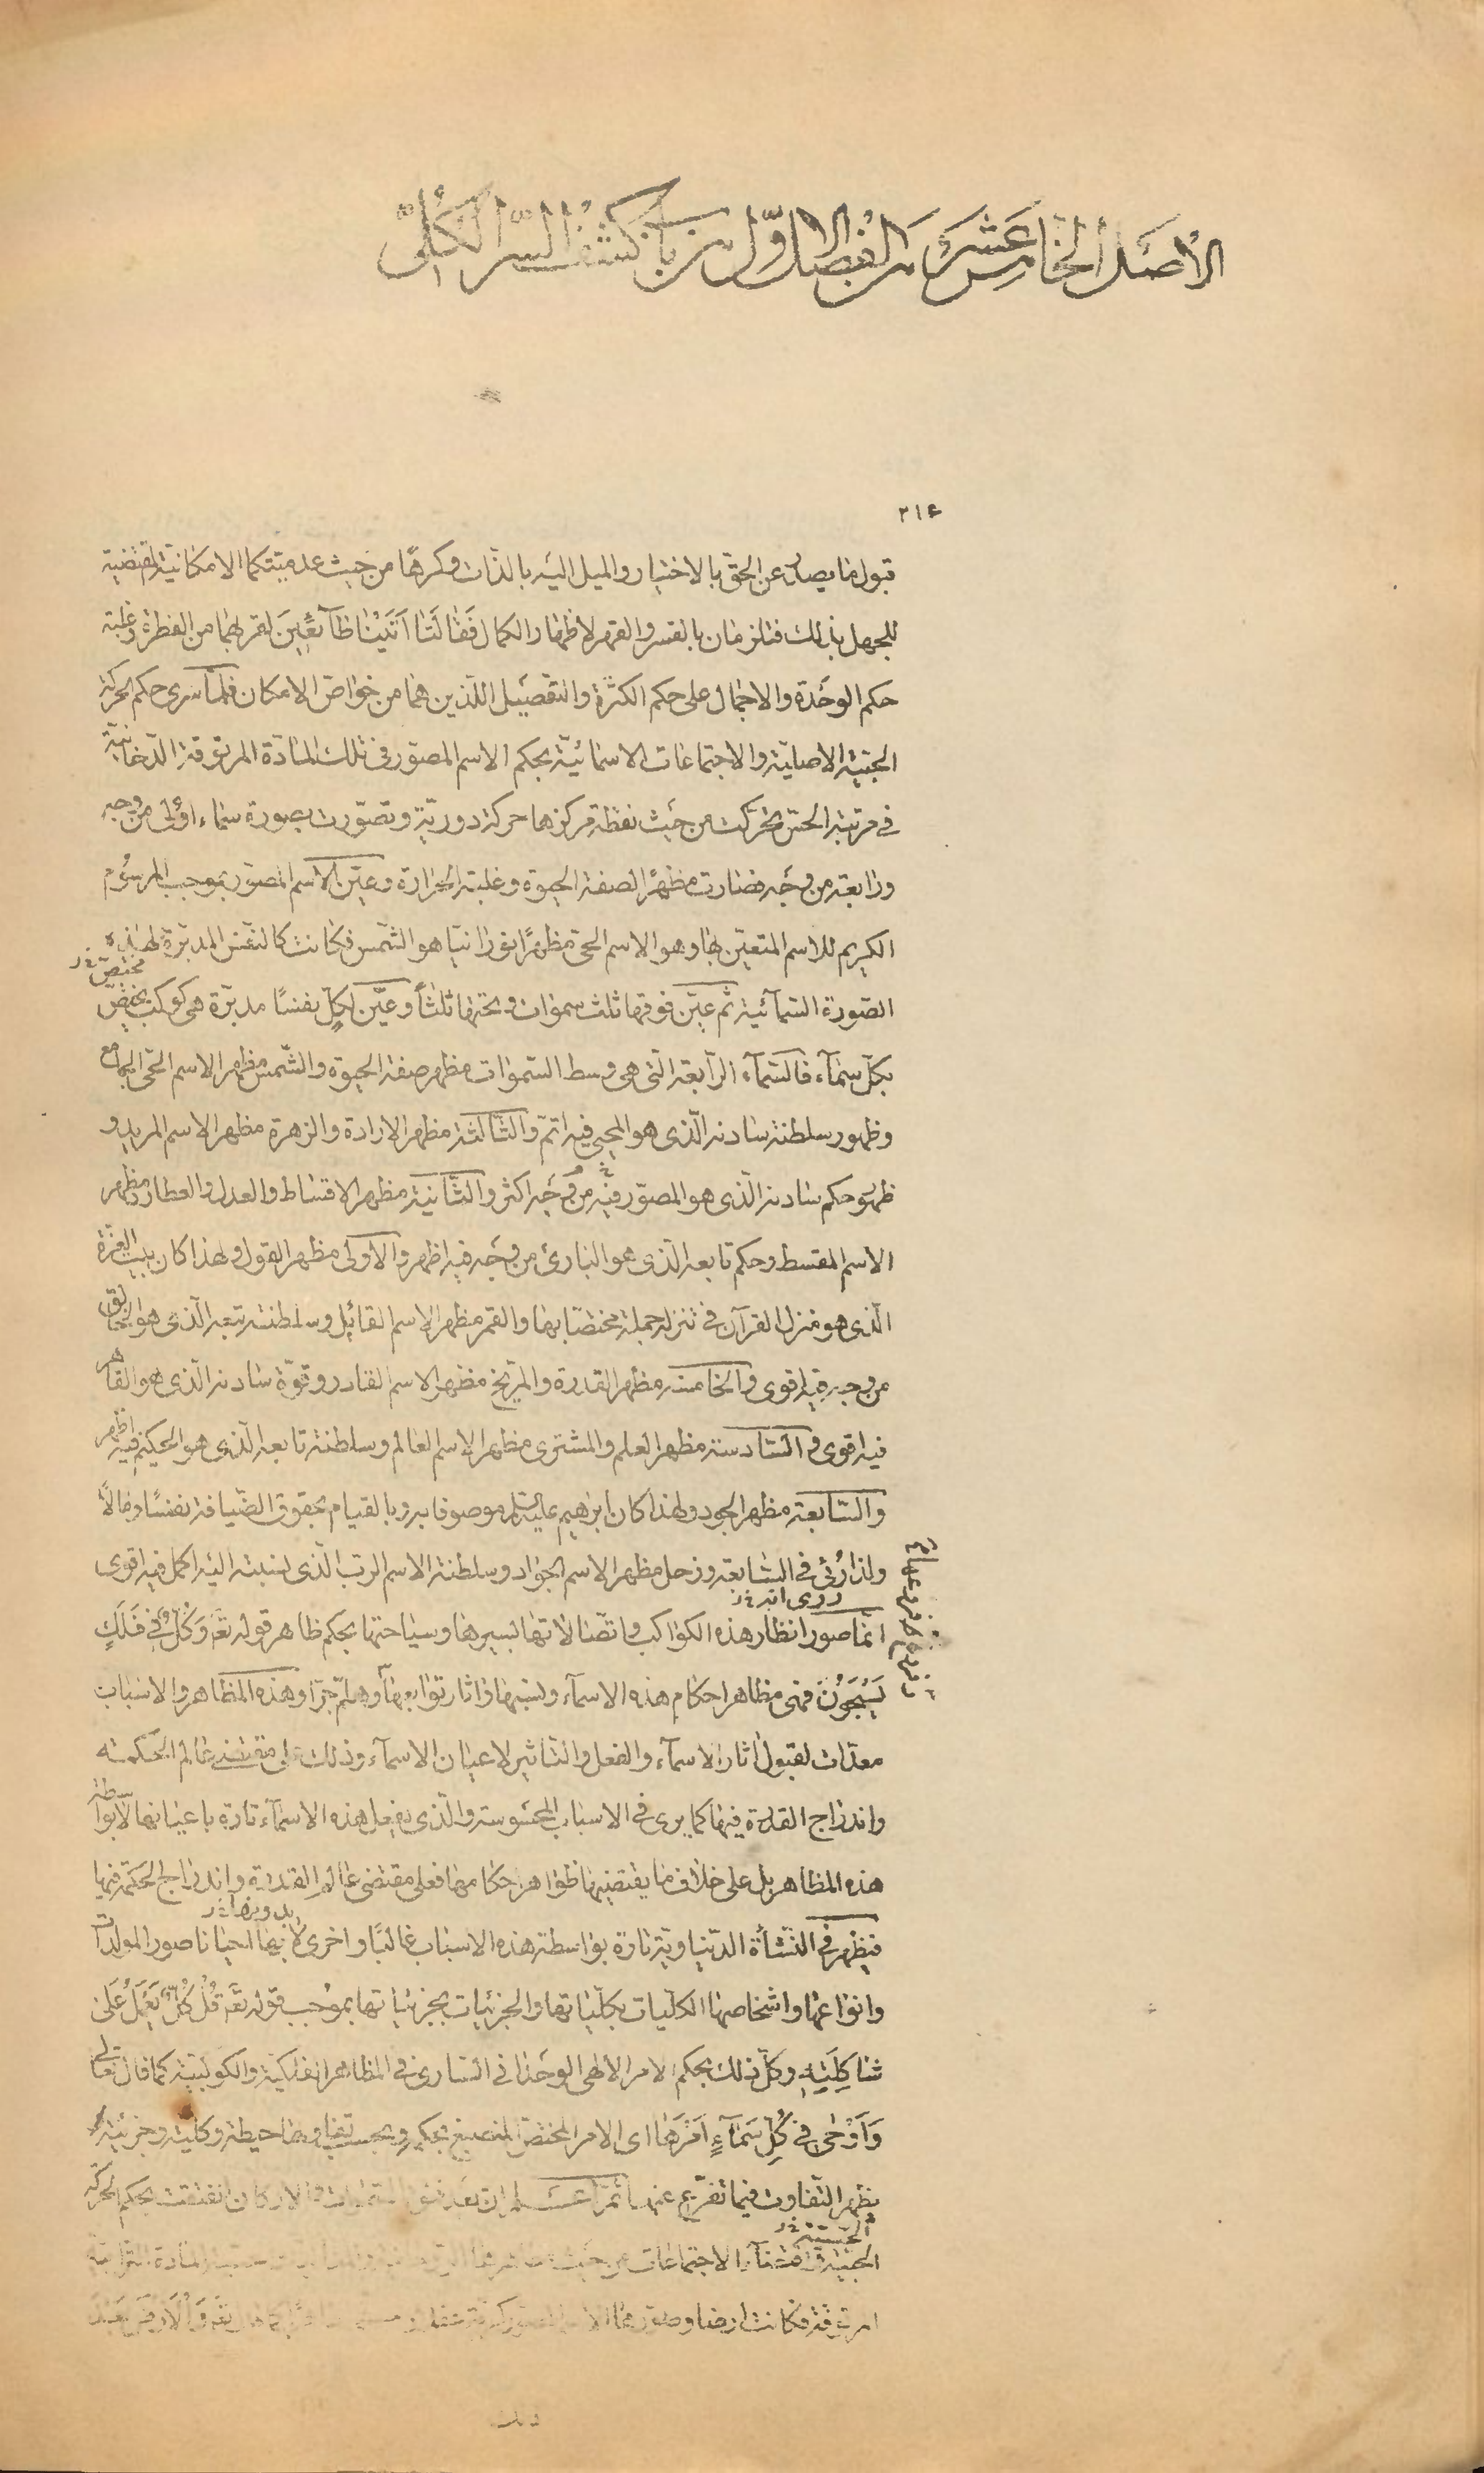 الأصل الخامس عشر من الفصل الاول من باب كشف السر الكلي
٢١٤
قبول ما يصل عن الحق بالاختيار والميل اليه بالذات وكرها من حيث عدميتكما الامكانية المقتضية
للجهل بذلك فتلزمان بالقسر والقهر لاظهار الكمال فَقالَتا اَتَيْنا طآئِعينَ لقربهما من الفطرة وغلبة
حكم الوحدة والاجمال على حكم الكثرة والتفصيل اللذين هما من خواص الامكان فلما سرى حكم الحركة
الحبّية الاصلية والاجتماعات الاسمائية بحكم الاسم المصور فى تلك المادة المرتوقة الدخانية
فى مرتبة الحس تحركت من حيث نقطة مركزها حركة دورية وتصورت بصورة سماء اولى من وجه
ورابعة من وجه فصارت مظهرا لصفة الحيوة وغلبة الحرارة وعيّن الاسم المصور بموجب المرسوم
الكريم للاسم المتعين بها وهو الاسم الحى مظهرا نورانيا هو الشمس فكانت كالنفس المدبرة لهذه
مختص خ ر
الصورة السمائية ثم عيّن فوقها ثلث سموات وتحتها ثلثا وعيّن لكل نفسا مدبرة هى كوكب يختص
بكل سمآء فالسمآء الرابعة التى هى وسط السموات مظهر صفة الحيوة والشمس مظهر الاسم الحى الجامع
وظهور سلطنة سادنه الذى هو المحيى فيه اتم والثالثة مظهر الارادة والزهرة مظهر الاسم المريد و
ظهور حكم سادنه الذى هو المصور فيه من وجه اكثر والثانية مظهر الاقساط والعدل والعطارد مظهر
الاسم المقسط وحكم تابعه الذى هو البارئ من وجه فيه اظهر والاولى مظهر القول ولهذا كان بيت العزة
الذى هو منزل القرآن فى تنزله جملة مختصا بها والقمر مظهر الاسم القائل وسلطنة تبعه الذى هو الخالق
من وجه فيه اقوى والخامسة مظهر القدرة والمريخ مظهر الاسم القادر وقوة سادنه الذى هو القاهر
فيه اقوى والسادسة مظهر العلم والمشترى مظهر الاسم العالم وسلطنة تابعه الذى هو الحكيم فيه اظهر
والسابعة مظهر الجود ولهذا كان ابراهيم عليه السلم موصوفا به وبالقيام بحقوق الضيافة نفسا ومالا
ولذا رُئى فى السابعة وزحل مظهر الاسم الجواد وسلطنة الاسم الرب الذى نسبته اليه اكمل فيه اقوى
روى انه خ ر
انما صور انظار هذه الكواكب واتصالاتها بسيرها وسياحتها بحكم ظاهر قوله تعَ وَكُلٌّ فى فَلَكٍ
يَسْبَحُونَ فهى مظاهر احكام هذه الاسمآء ونسبها واثار توابعها وهلمّ جرا وهذه المظاهر والاسباب
معدات لقبول اثار الاسمآء والفعل والتاثير لاعيان الاسمآء وذلك على مقتضى عالم الحكمة
واندراج القدرة فيها كما يرى فى الاسباب المحسوسة والذى يفعل هذه الاسمآء تارة باعيانها لا بواسطة
هذه المظاهر بل على خلاف ما يقتضيها ظواهر احكامها فعلى مقتضى عالم القدرة واندراج الحكمة فيها
بدونها خ ر
فيظهر فى النشأة الدنياوية تارة بواسطة هذه الاسباب غالبا واخرى لا بها احيانا صور المولدات
وانواعها واشخاصها الكليات بكلياتها والجزئيات بجزئياتها بموجب قوله تعَ قُلْ كُلٌّ يَعْمَلُ عَلى
شاكِلَتِهِ وكل ذلك بحكم الامر الالهى الوحدانى السارى فى المظاهر الفلكية والكوكبية كما قال تعالى
وَاَوْحى فى كُلِّ سَمآءٍ اَمْرَها اى الامر المختص المنصبغ بحكمه وبحسب تفاوتها حيطة وكلية وجزئية
يظهر التفاوت فيما تفرع عنها ثم اعلم ان بعد فتق السموات والاركان انفتقت بحكم الحركة
الحسية خ ر
الحبية واقتضآء الاجتماعات من حيث المادة الترابية
المرتوقة فكانت ارضا وصورها تعَ وَالْاَرْضَ بَعْدَ